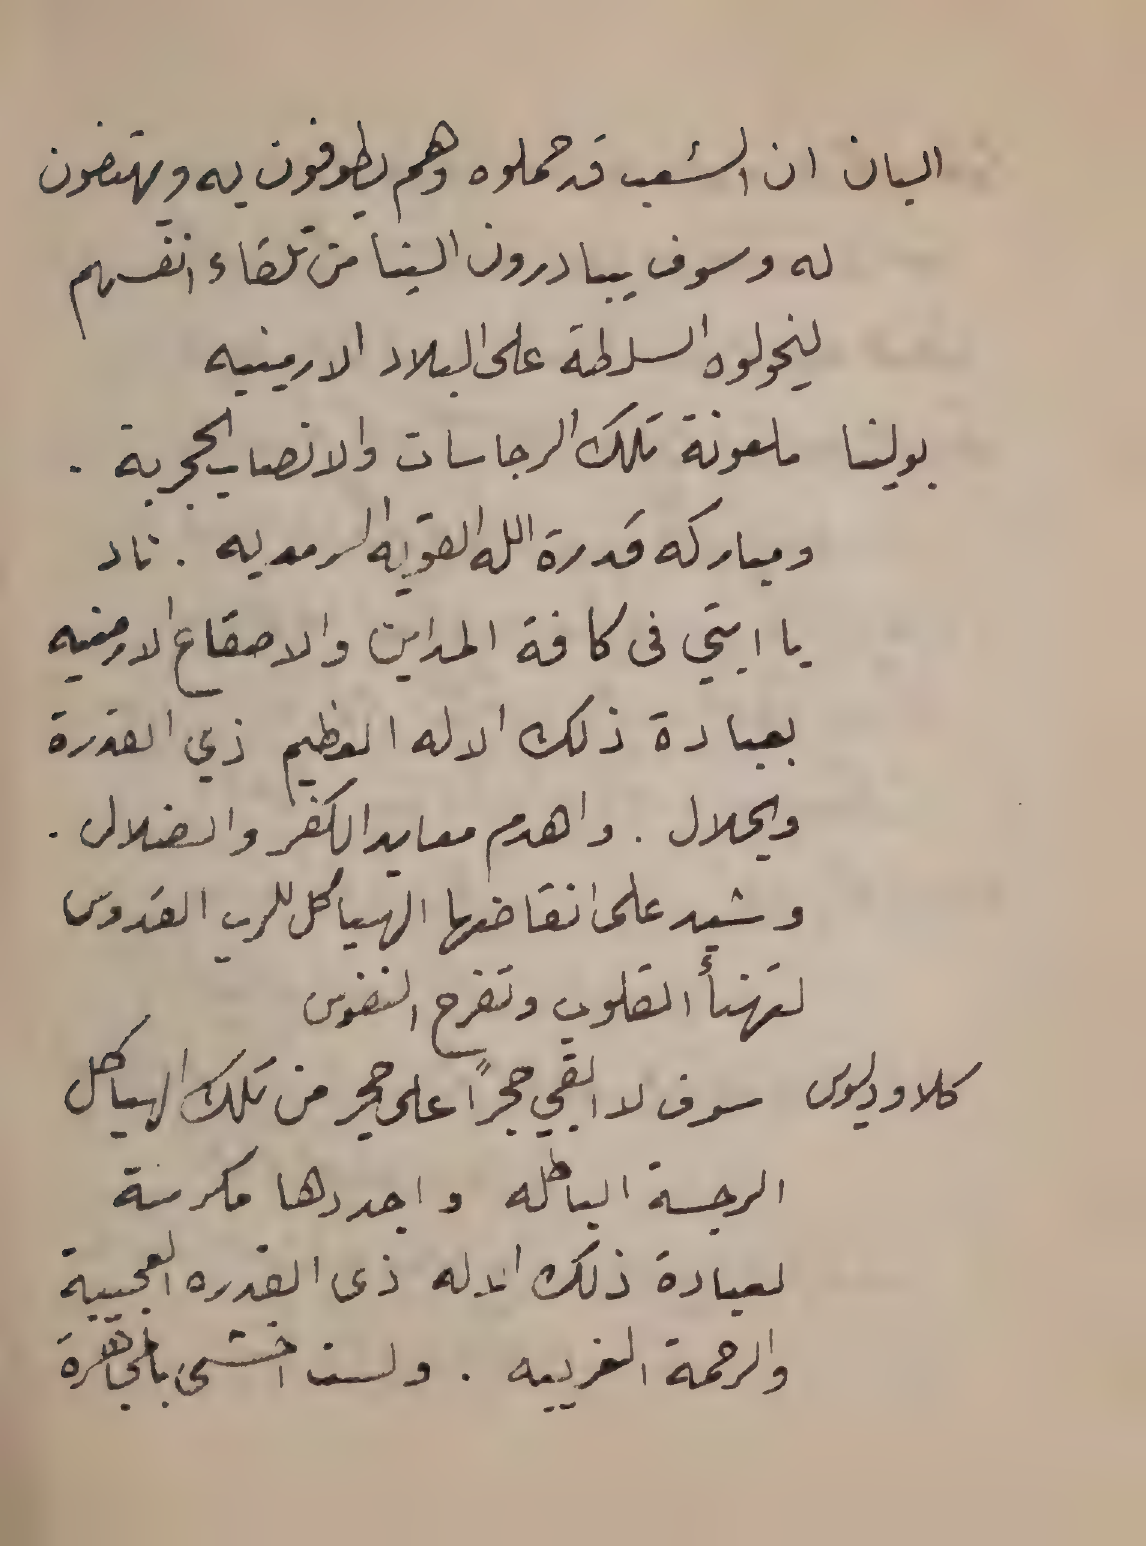 البيان ان الشعب قد حملوه وهم يطوفون به ويهتضون
له وسوف يبادرون الينا من تلقاء انفسهم
ليخولوه السلطة على البلاد الارمينيه
بولينا ملعونة تلك الرجاسات والانصاب الحجرية .
ومباركه قدرة الله القويه السرمديه . ناد
يا ابتي في كافة المداين والاصقاع الارمنيه
بعبادة ذلك الاله العظيم ذي القدرة
والجلال . واهدم معابد الكفر والضلال .
وشيد على انقاضها الهياكل للرب القدوس
لتهنأ القلوب وتفرح النفوس
كلاوديوس سوف لا ابقي حجرًا على حجر من تلك الهياكل
الرجسة الباطله واجددها مكرسة
لعبادة ذلك الاله ذى القدره العجيبة
والرحمة الغريبه . ولست اخشى بالمجاهرة